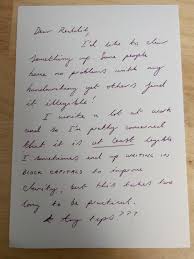 Dear Reddit,
I'd like to clear
something up. Some people
have no problems with my
handwriting yet others find
it illegible!
I write a lot at work
and so I'm pretty concerned
that it is at least legible
I sometimes end up WRITING IN
BLOCK CAPITALS to improve
clarity, but this takes too
long to be practical.
Any tips???